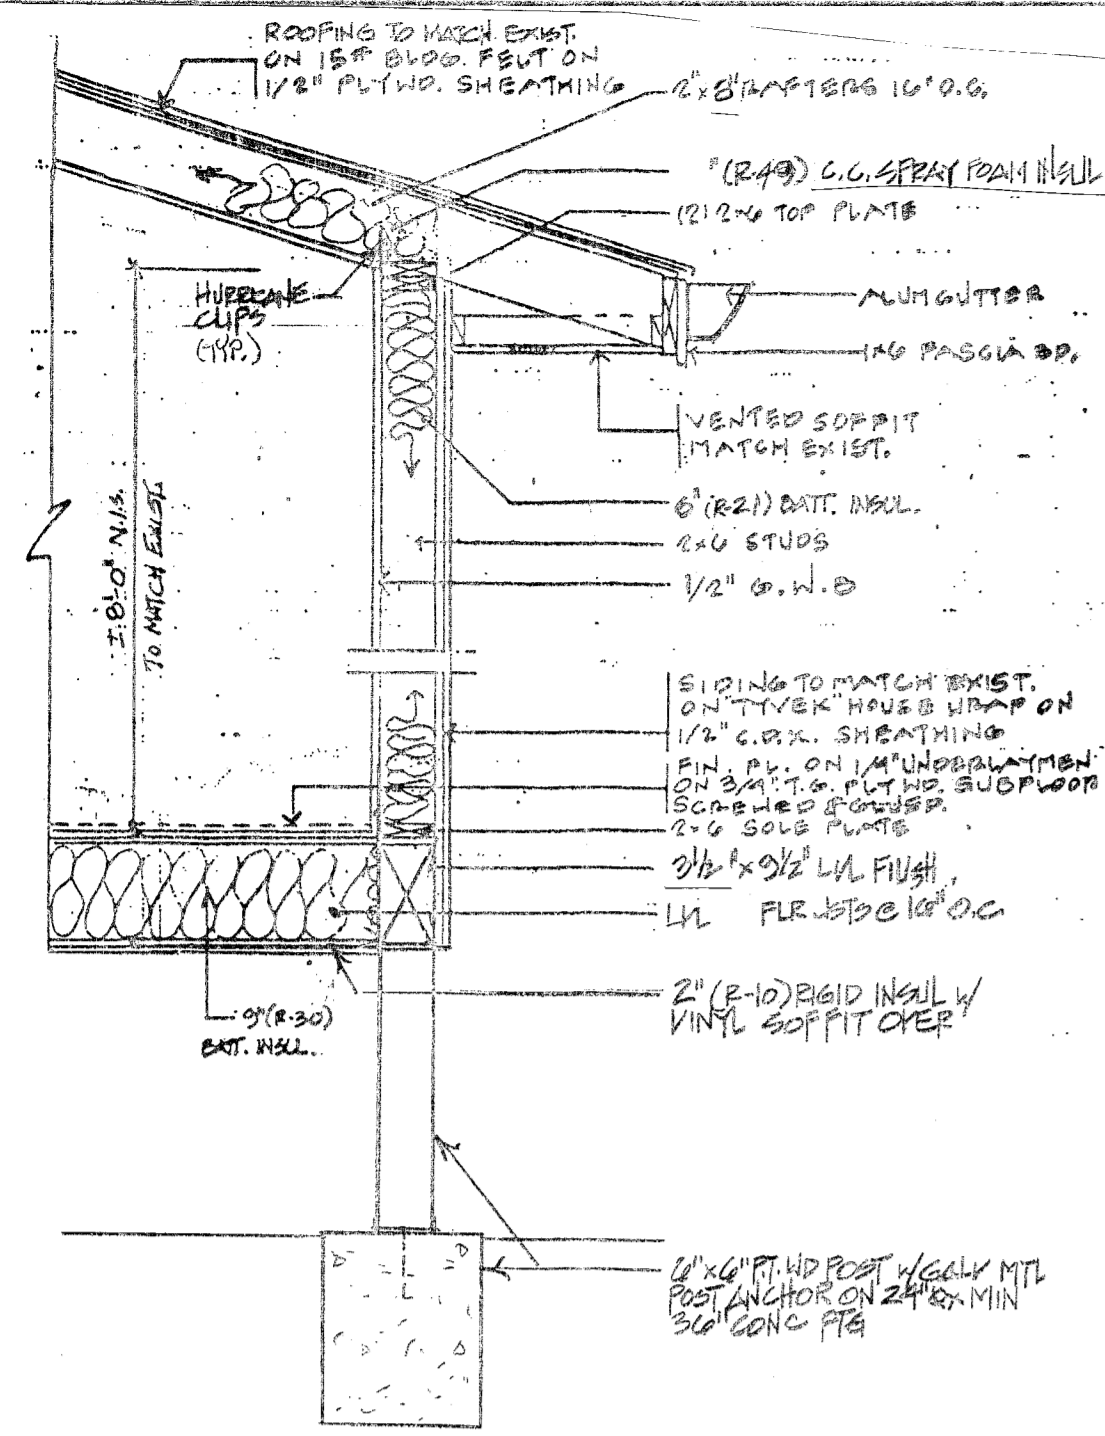 ROOFING TO MATCH EXIST.
ON 15# BLDG. FELT ON
1/2" PLYWD. SHEATHING
2"x8" RAFTERS 16" O.C.
"(R-49) C.C. SPRAY FOAM INSUL
(2) 2x6 TOP PLATE
HURRICANE
CLIPS
(TYP.)
ALUM GUTTER
1x6 FASCIA BD.
VENTED SOFFIT
MATCH EXIST.
6" (R-21) BATT. INSUL.
2x6 STUDS
1/2" G.W.B
±8'-0" N.I.S.
TO MATCH EXIST.
SIDING TO MATCH EXIST.
ON "TYVEK" HOUSE WRAP ON
1/2" C.D.X. SHEATHING
FIN. FL. ON 1/4" UNDERLAYMEN
ON 3/4" T.G. PLYWD. SUBFLOOR
SCREWED & GLUED.
2x6 SOLE PLATE
3 1/2" x 9 1/2" LVL FLUSH
LVL FLR JSTS @ 16" O.C
2" (R-10) RIGID INSUL W/
VINYL SOFFIT OVER
9" (R-30)
BATT. INSUL.
6"x6" P.T. WD POST W/ GALV MTL
POST ANCHOR ON 24" MIN
36" CONC FTG